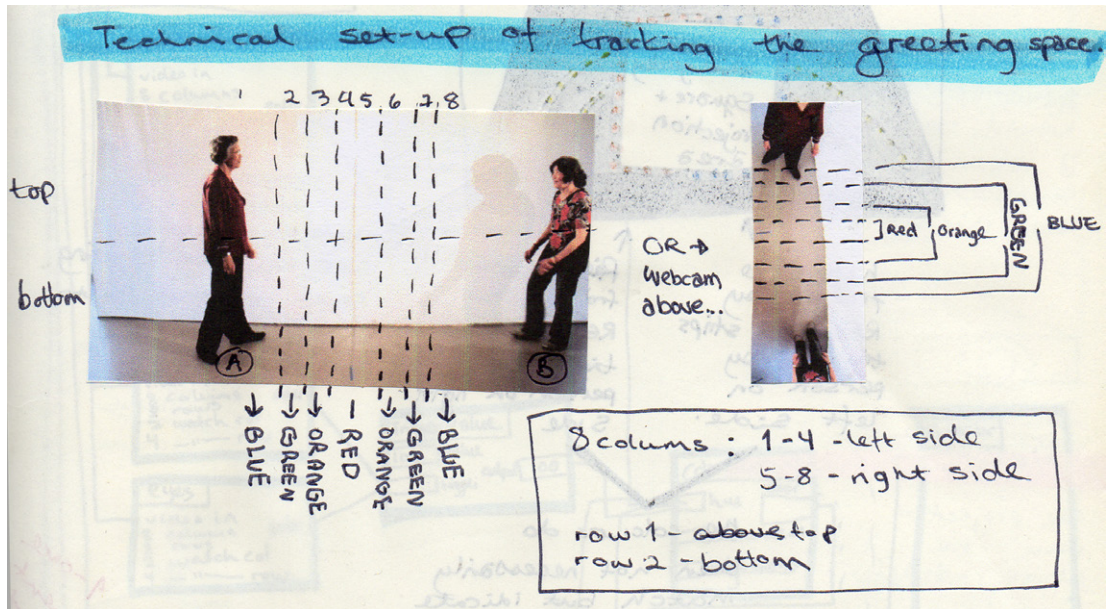 Technical set-up of tracking the greeting space.
1 2 3 4 5 6 7 8
top
bottom
A
B
BLUE
GREEN
ORANGE
RED
ORANGE
GREEN
BLUE
OR →
webcam
above...
Red
Orange
GREEN
BLUE
8 colums : 1-4 - left side
5-8 - right side
row 1 - above top
row 2 - bottom